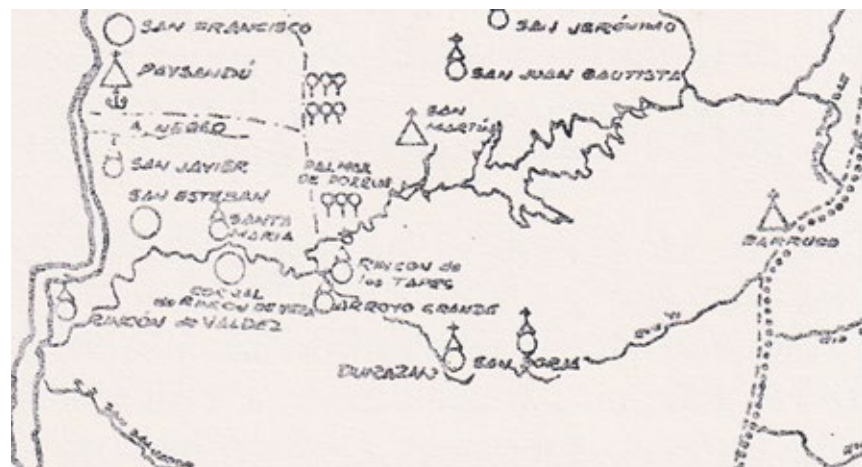 SAN FRANCISCO
SAN JERÓNIMO
PAYSANDÚ
SAN JUAN BAUTISTA
A. NEGRO
SAN
MARTÍN
SAN JAVIER
PALMAR
DE PORRUA
SAN ESTEBAN
SANTA
MARIA
BARRUSO
RINCON de
los TAPES
CORRAL
de RINCON DE VERA
ARROYO GRANDE
RINCÓN de VALDEZ
RIO YI
DURAZAN
SAN BORJA
SAN SALVADOR